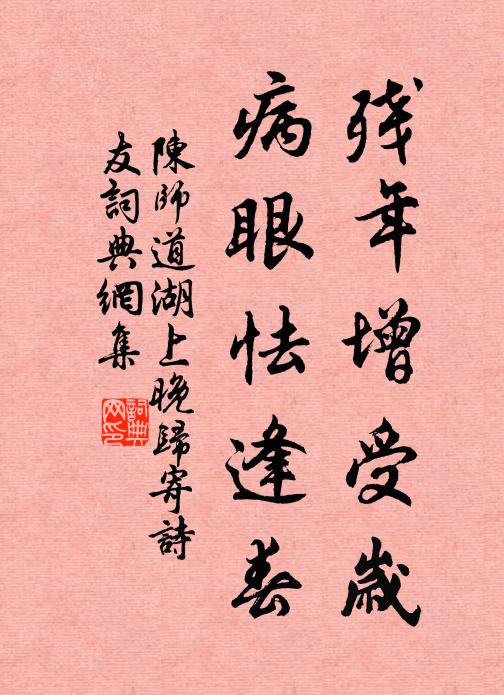 殘年增受歲
病眼怯逢春
陳師道湖上晚歸寄詩
友詞典網集
詞典
网印